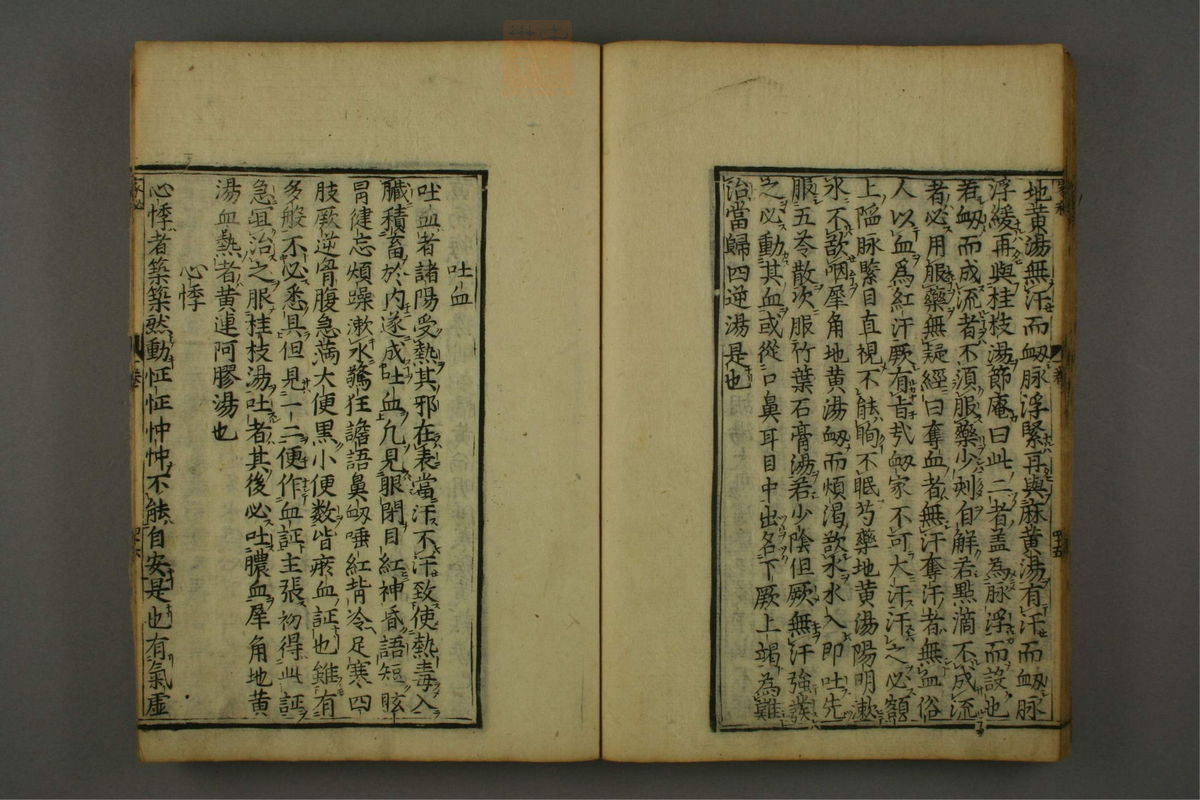 地黄湯無汗而衂脉浮緊再與麻黄湯有汗而衂脉
浮緩再與桂枝湯節庵曰此二者盖為脉浮而設也
若衂而成流者不須服藥少刻自解若點滴不成流
者必用服藥無疑經曰奪血者無汗奪汗者無血俗
人以血爲紅汗厥有旨哉衂家不可大汗汗之必額
上陷脉緊目直視不能眴不眠芍藥地黄湯陽明漱
水不欲咽犀角地黄湯衂而煩渇欲水水入即吐先
服五苓散次服竹葉石膏湯若少陰但厥無汗強發
之必動其血或從口鼻耳目中出名下厥上竭為難
治當歸四逆湯是也
四十五
吐血
吐血者諸陽受熱其邪在表當汗不汗致使熱毒入
臓積畜於内遂成吐血凢見眼閉目紅神昏語短眩
冒健忘煩躁漱水驚狂譫語鼻衂唾紅背冷足寒四
肢厥逆骨腹急満大便黒小便数皆瘀血証也雖有
多般不必悉具但見一二便作血証主張初得此証
急宜治之服桂枝湯吐者其後必吐膿血犀角地黄
湯血熱者黄連阿膠湯也
心悸
心悸者築築然動怔怔忡忡不能自安是也有氣虚